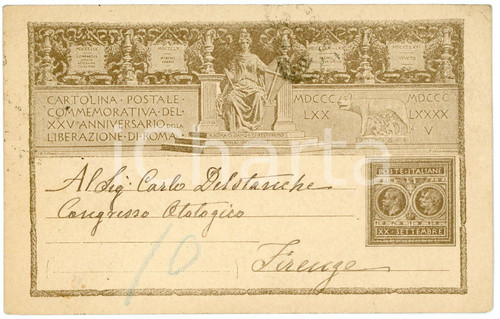 CARTOLINA · POSTALE
COMMEMORATIVA · DEL
XXV · ANNIVERSARIO DELLA
LIBERAZIONE · DI · ROMA ·
MDCCC
LXX
MDCCC
LXXXX
V
POSTE · ITALIANE
XX · SETTEMBRE
Al Sig. Carlo Delstanche
Congresso Otologico
Firenze
10
lcharta